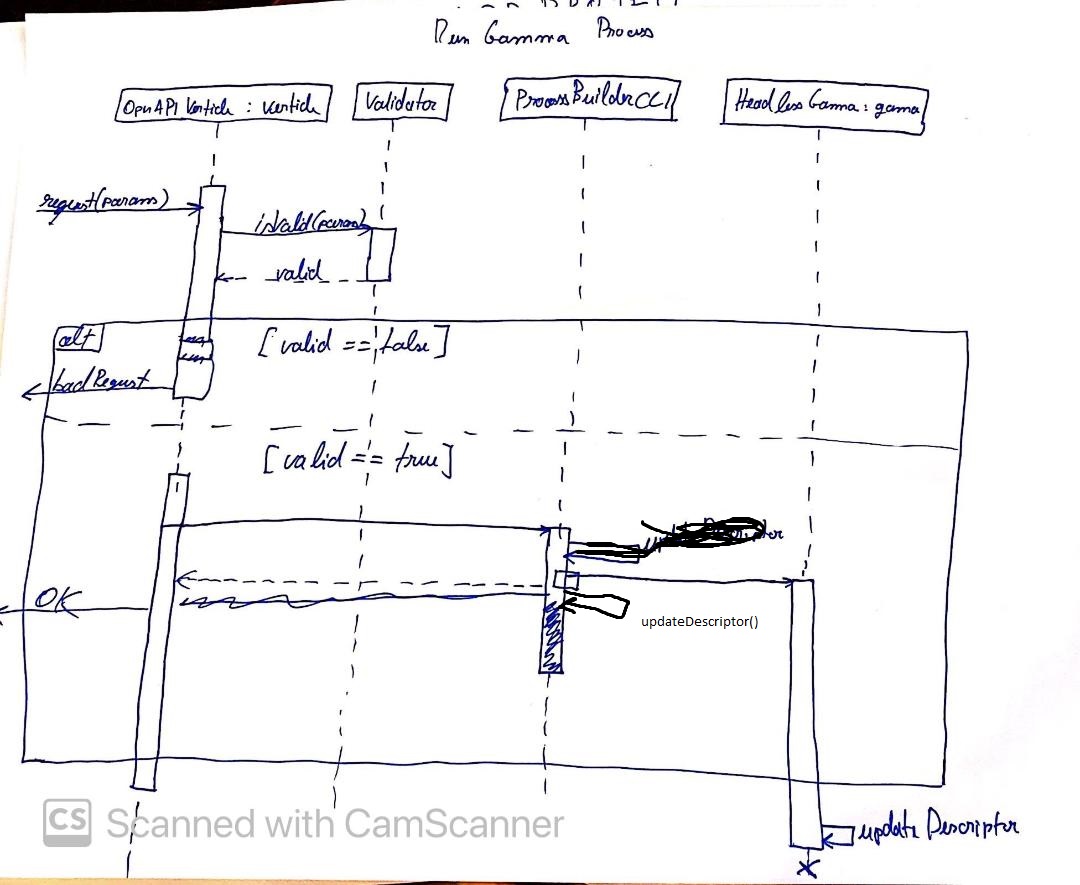 Run Gamma Process
OpenAPI Verticle : Verticle
Validator
ProcessBuilderCLI
Headless Gama : gama
request(params)
isValid(params)
valid
alt
[valid == false]
badRequest
[valid == true]
OK
updateDescriptor()
CS Scanned with CamScanner
update Descriptor